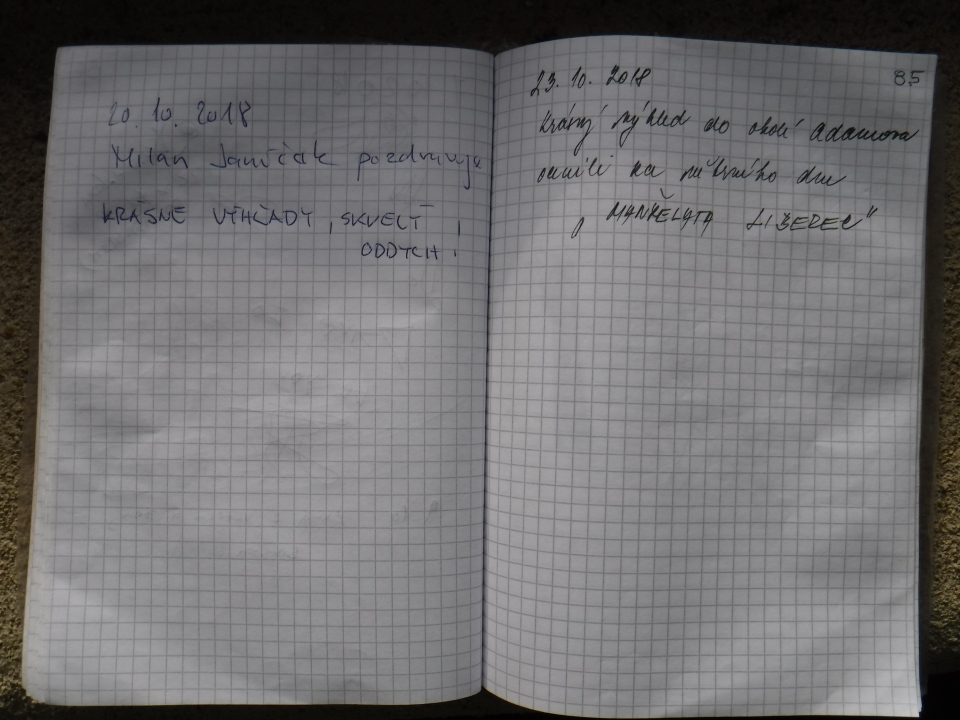 20. 10. 2018
Milan Jančiak pozdravuje
KRÁSNE VÝHĽADY, SKVELÝ
ODDYCH!
85
23. 10. 2018
Krásný výhled do okolí Adamova
na dne
"MANŽELÁTA LIBEREC"